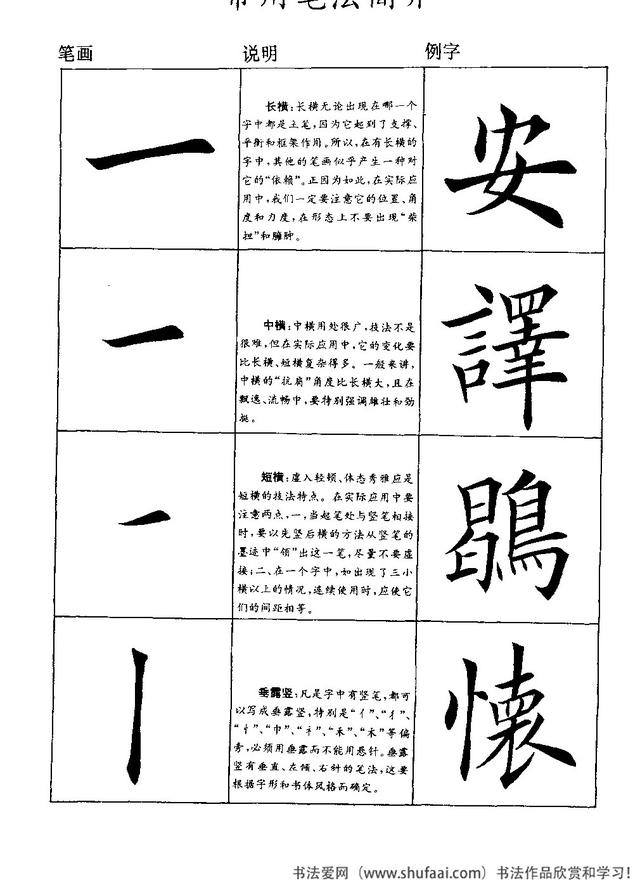 常用笔法简介
笔画 说明 例字
一
长横：长横无论出现在哪一个
字中都是主笔，因为它起到了支撑、
平衡和框架作用。所以，在有长横的
字中，其他的笔画似乎产生一种对
它的“依赖”。正因为如此，在实际应
用中，我们一定要注意它的位置、角
度和力度，在形态上不要出现“柴
担”和臃肿。
安
一
中横：中横用处很广，技法不是
很难，但在实际应用中，它的变化要
比长横、短横复杂得多。一般来讲，
中横的“抗肩”角度比长横大，且在
飘逸、流畅中，要特别强调雄壮和劲
挺。
譯
一
短横：虚入轻顿、体态秀雅应是
短横的技法特点。在实际应用中要
注意两点，一，当起笔处与竖笔相接
时，要以先竖后横的方法从竖笔的
墨迹中“领”出这一笔，尽量不要虚
接；二、在一个字中，如出现了三小
横以上的情况，连续使用时，应使它
们的间距相等。
丨
垂露竖：凡是字中有竖笔，都可
以写成垂露竖，特别是“亻”、“犭”、
“忄”、“巾”、“礻”、“禾”、“木”等偏
旁，必须用垂露而不能用悬针。垂露
竖有垂直、左倾、右斜的笔法，这要
根据字形和书体风格而确定。
懐
书法爱网（www.shufaai.com）书法作品欣赏和学习！